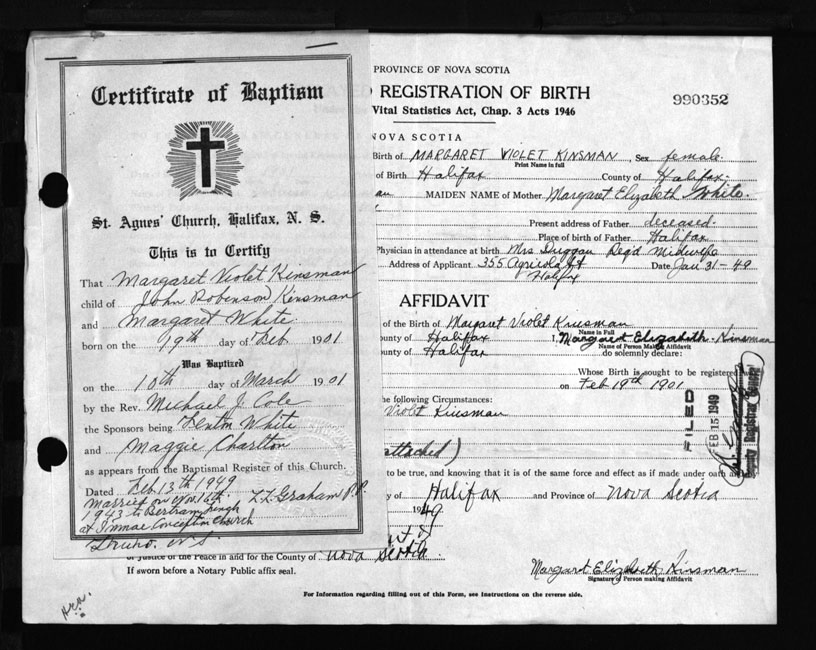 Certificate of Baptism
St. Agnes' Church, Halifax, N. S.
This is to Certify
That Margaret Violet Kinsman
child of John Robinson Kinsman
and Margaret White
born on the 19th day of Feb 1901
Was Baptized
on the 10th day of March 1901
by the Rev. Michael J. Cole
the Sponsors being White
and Maggie Charlton
as appears from the Baptismal Register of this Church.
Dated Feb 13th 1949
Graham P.P.
Married on
1943 to Bertram
at Immac Conception Church
Truro. N.S.
PROVINCE OF NOVA SCOTIA
REGISTRATION OF BIRTH
990352
Vital Statistics Act, Chap. 3 Acts 1946
NOVA SCOTIA
Birth of MARGARET VIOLET KINSMAN, Sex female
Print Name in full
of Birth Halifax County of Halifax
MAIDEN NAME of Mother Margaret Elizabeth White
Present address of Father deceased
Place of birth of Father Halifax
Physician in attendance at birth Mrs Duggan Reg'd Midwife
Address of Applicant 355 Agricola St Date Jan 31-49
Halifax
AFFIDAVIT
of the Birth of Margaret Violet Kinsman
Name in Full
ounty of Halifax I, Margaret Elizabeth Kinsman
Name of Person Making Affidavit
ounty of Halifax do solemnly declare:
Whose Birth is sought to be registered
on Feb 19th 1901
he following Circumstances:
Violet Kinsman
attached)
to be true, and knowing that it is of the same force and effect as if made under oath
y of Halifax and Province of Nova Scotia
1949
or Justice of the Peace in and for the County of Nova Scotia
If sworn before a Notary Public affix seal.
Margaret Elizabeth Kinsman
Signature of Person making Affidavit
For Information regarding filling out of this Form, see Instructions on the reverse side.
FILED
FEB 15 1949
Deputy Registrar General